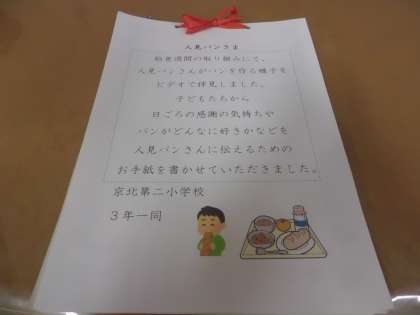 人見パンさま
給食週間の取り組みにて、
人見パンさんがパンを作る様子を
ビデオで拝見しました。
子どもたちから
日ごろの感謝の気持ちや
パンがどんなに好きかなどを
人見パンさんに伝えるための
お手紙を書かせていただきました。
京北第二小学校
3年一同